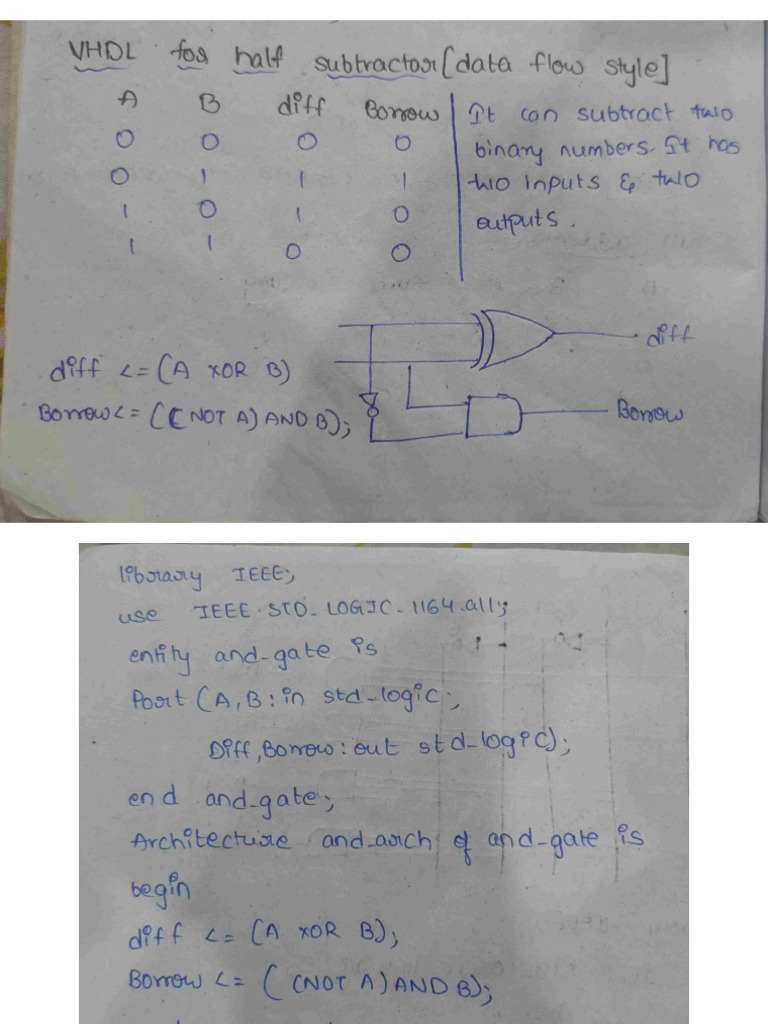 VHDL for half subtractor [data flow style]
A B diff Borrow
0 0 0 0
0 1 1 1
1 0 1 0
1 1 0 0
It can subtract two
binary numbers. It has
two inputs & two
outputs.
diff <= (A XOR B)
Borrow <= ((NOT A) AND B);
diff
Borrow
library IEEE;
use IEEE.STD_LOGIC_1164.all;
entity and_gate is
Port (A, B : in std_logic;
Diff, Borrow : out std_logic);
end and_gate;
Architecture and_arch of and_gate is
begin
diff <= (A XOR B);
Borrow <= ((NOT A) AND B);